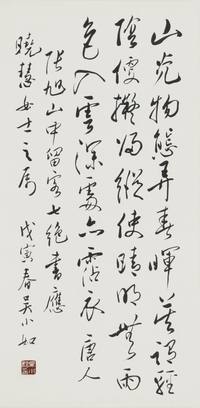 山光物態弄春暉莫謂輕
陰便擬歸縱使晴明無雨
色入雲深處亦霑衣唐人
張旭山中留客七絕書應
曉慧女士之屬 戊寅春吳小如